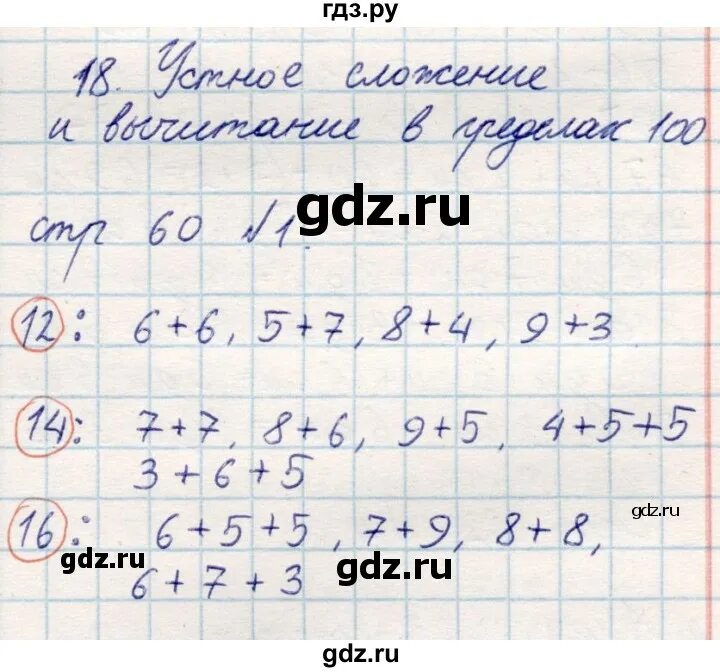 гдз.ру
18. Устное сложение
и вычитание в пределах 100
gdz.ru
стр 60 №1.
12: 6+6, 5+7, 8+4, 9+3
14: 7+7, 8+6, 9+5, 4+5+5
3+6+5
gdz.ru
16: 6+5+5, 7+9, 8+8,
gdz.ru
gdz.ru
6+7+3
gdz.ru